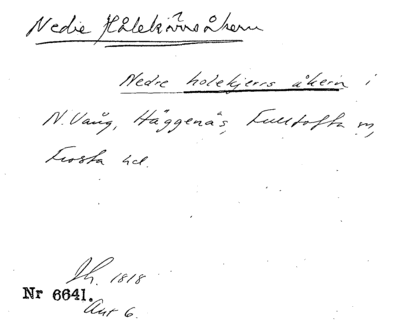 Nedre Hålekärrsåkern
Nedre holekjerrs åkern i
N. Vång, Häggenäs, Fulltofta sn,
Frosta hd.
Sh. 1818
Nr 6641.
Akt 6.